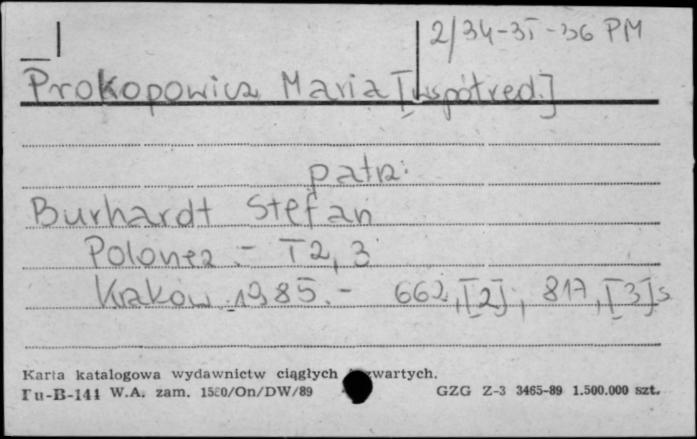 2/34-35-36 PM
Prokopowicz Maria [współred.]
patrz:
Burhardt Stefan
Polonez.- T 2, 3
Kraków 1985.- 662, [2]; 817, [3] s
Karta katalogowa wydawnictw ciągłych zwartych.
Pu-B-141 W.A. zam. 1580/On/DW/89 GZG Z-3 3465-89 1.500.000 szt.